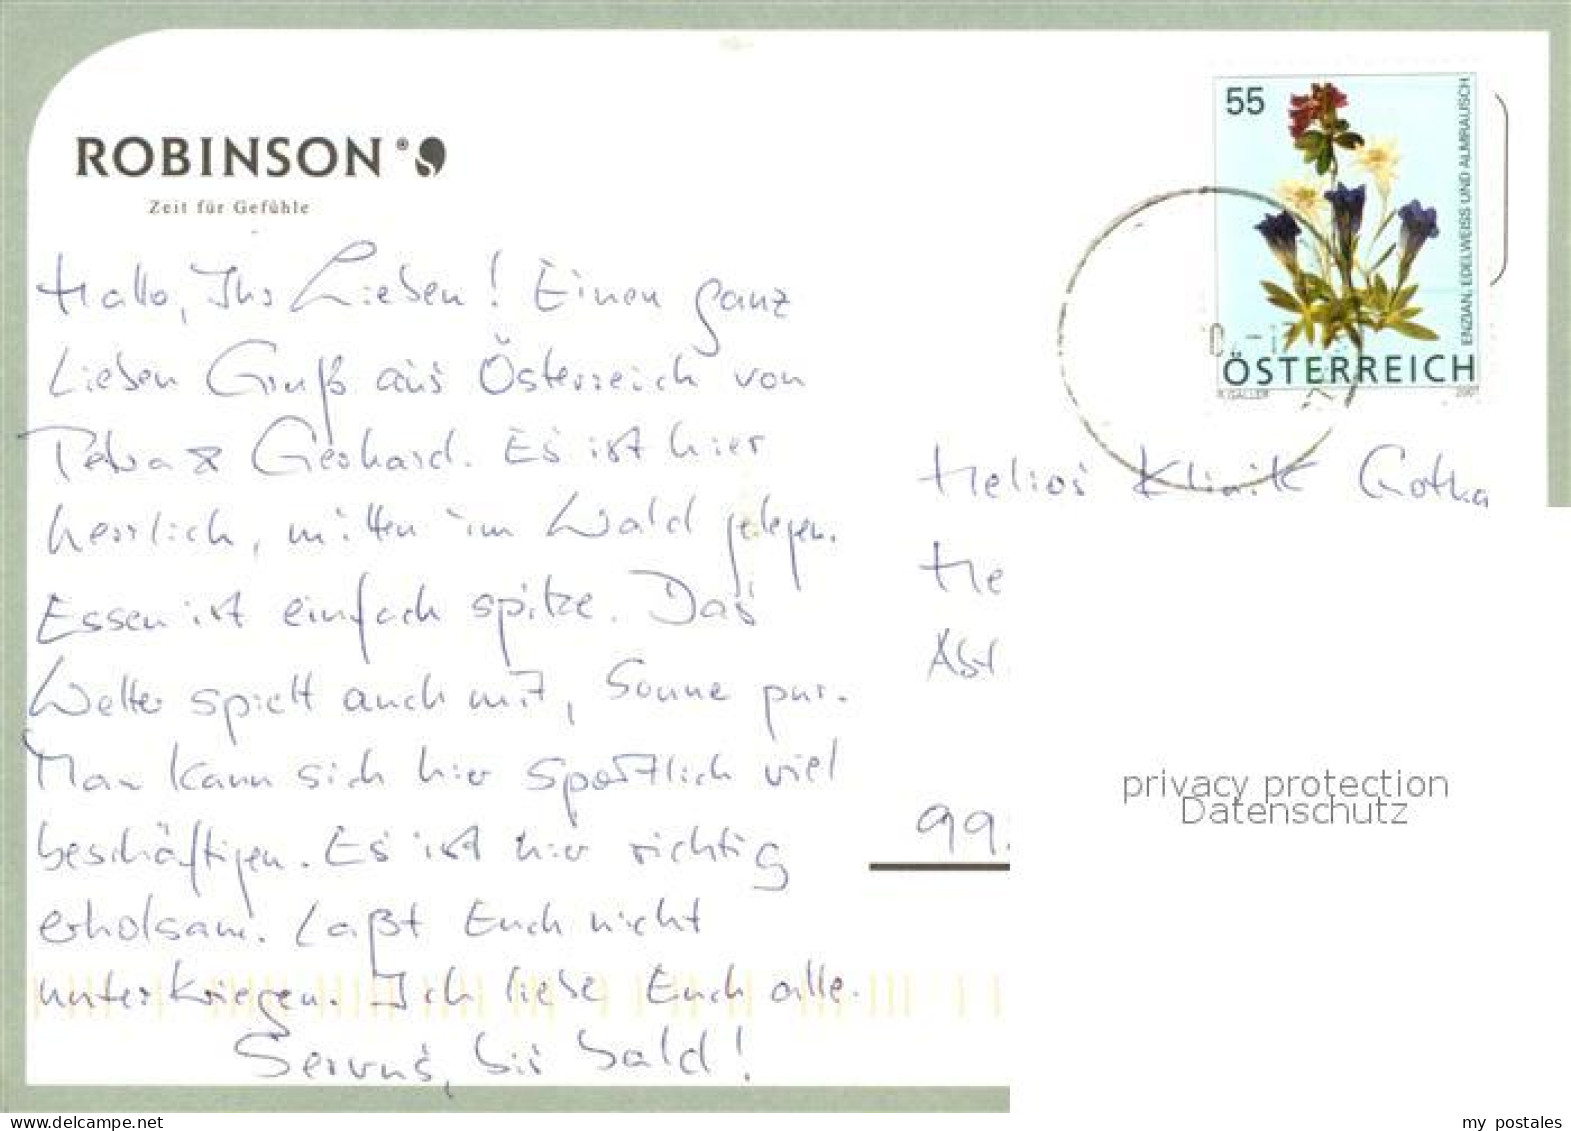 ROBINSON®
Zeit für Gefühle
Hallo, Ihr Lieben! Einen ganz
lieben Gruß aus Österreich von
Petra & Gerhard. Es ist hier
herrlich, mitten im Wald gelegen.
Essen ist einfach spitze. Das
Wetter spielt auch mit, Sonne pur.
Man kann sich hier sportlich viel
beschäftigen. Es ist hier richtig
erholsam. Laßt Euch nicht
unterkriegen. Ich liebe Euch alle.
Servus, bis bald!
55
ENZIAN, EDELWEISS UND ALMRAUSCH
ÖSTERREICH
R. GALLER 2007
Helios Klinik Gotha
He
Abt.
99
privacy protection
Datenschutz
delcampe.net
my_postales